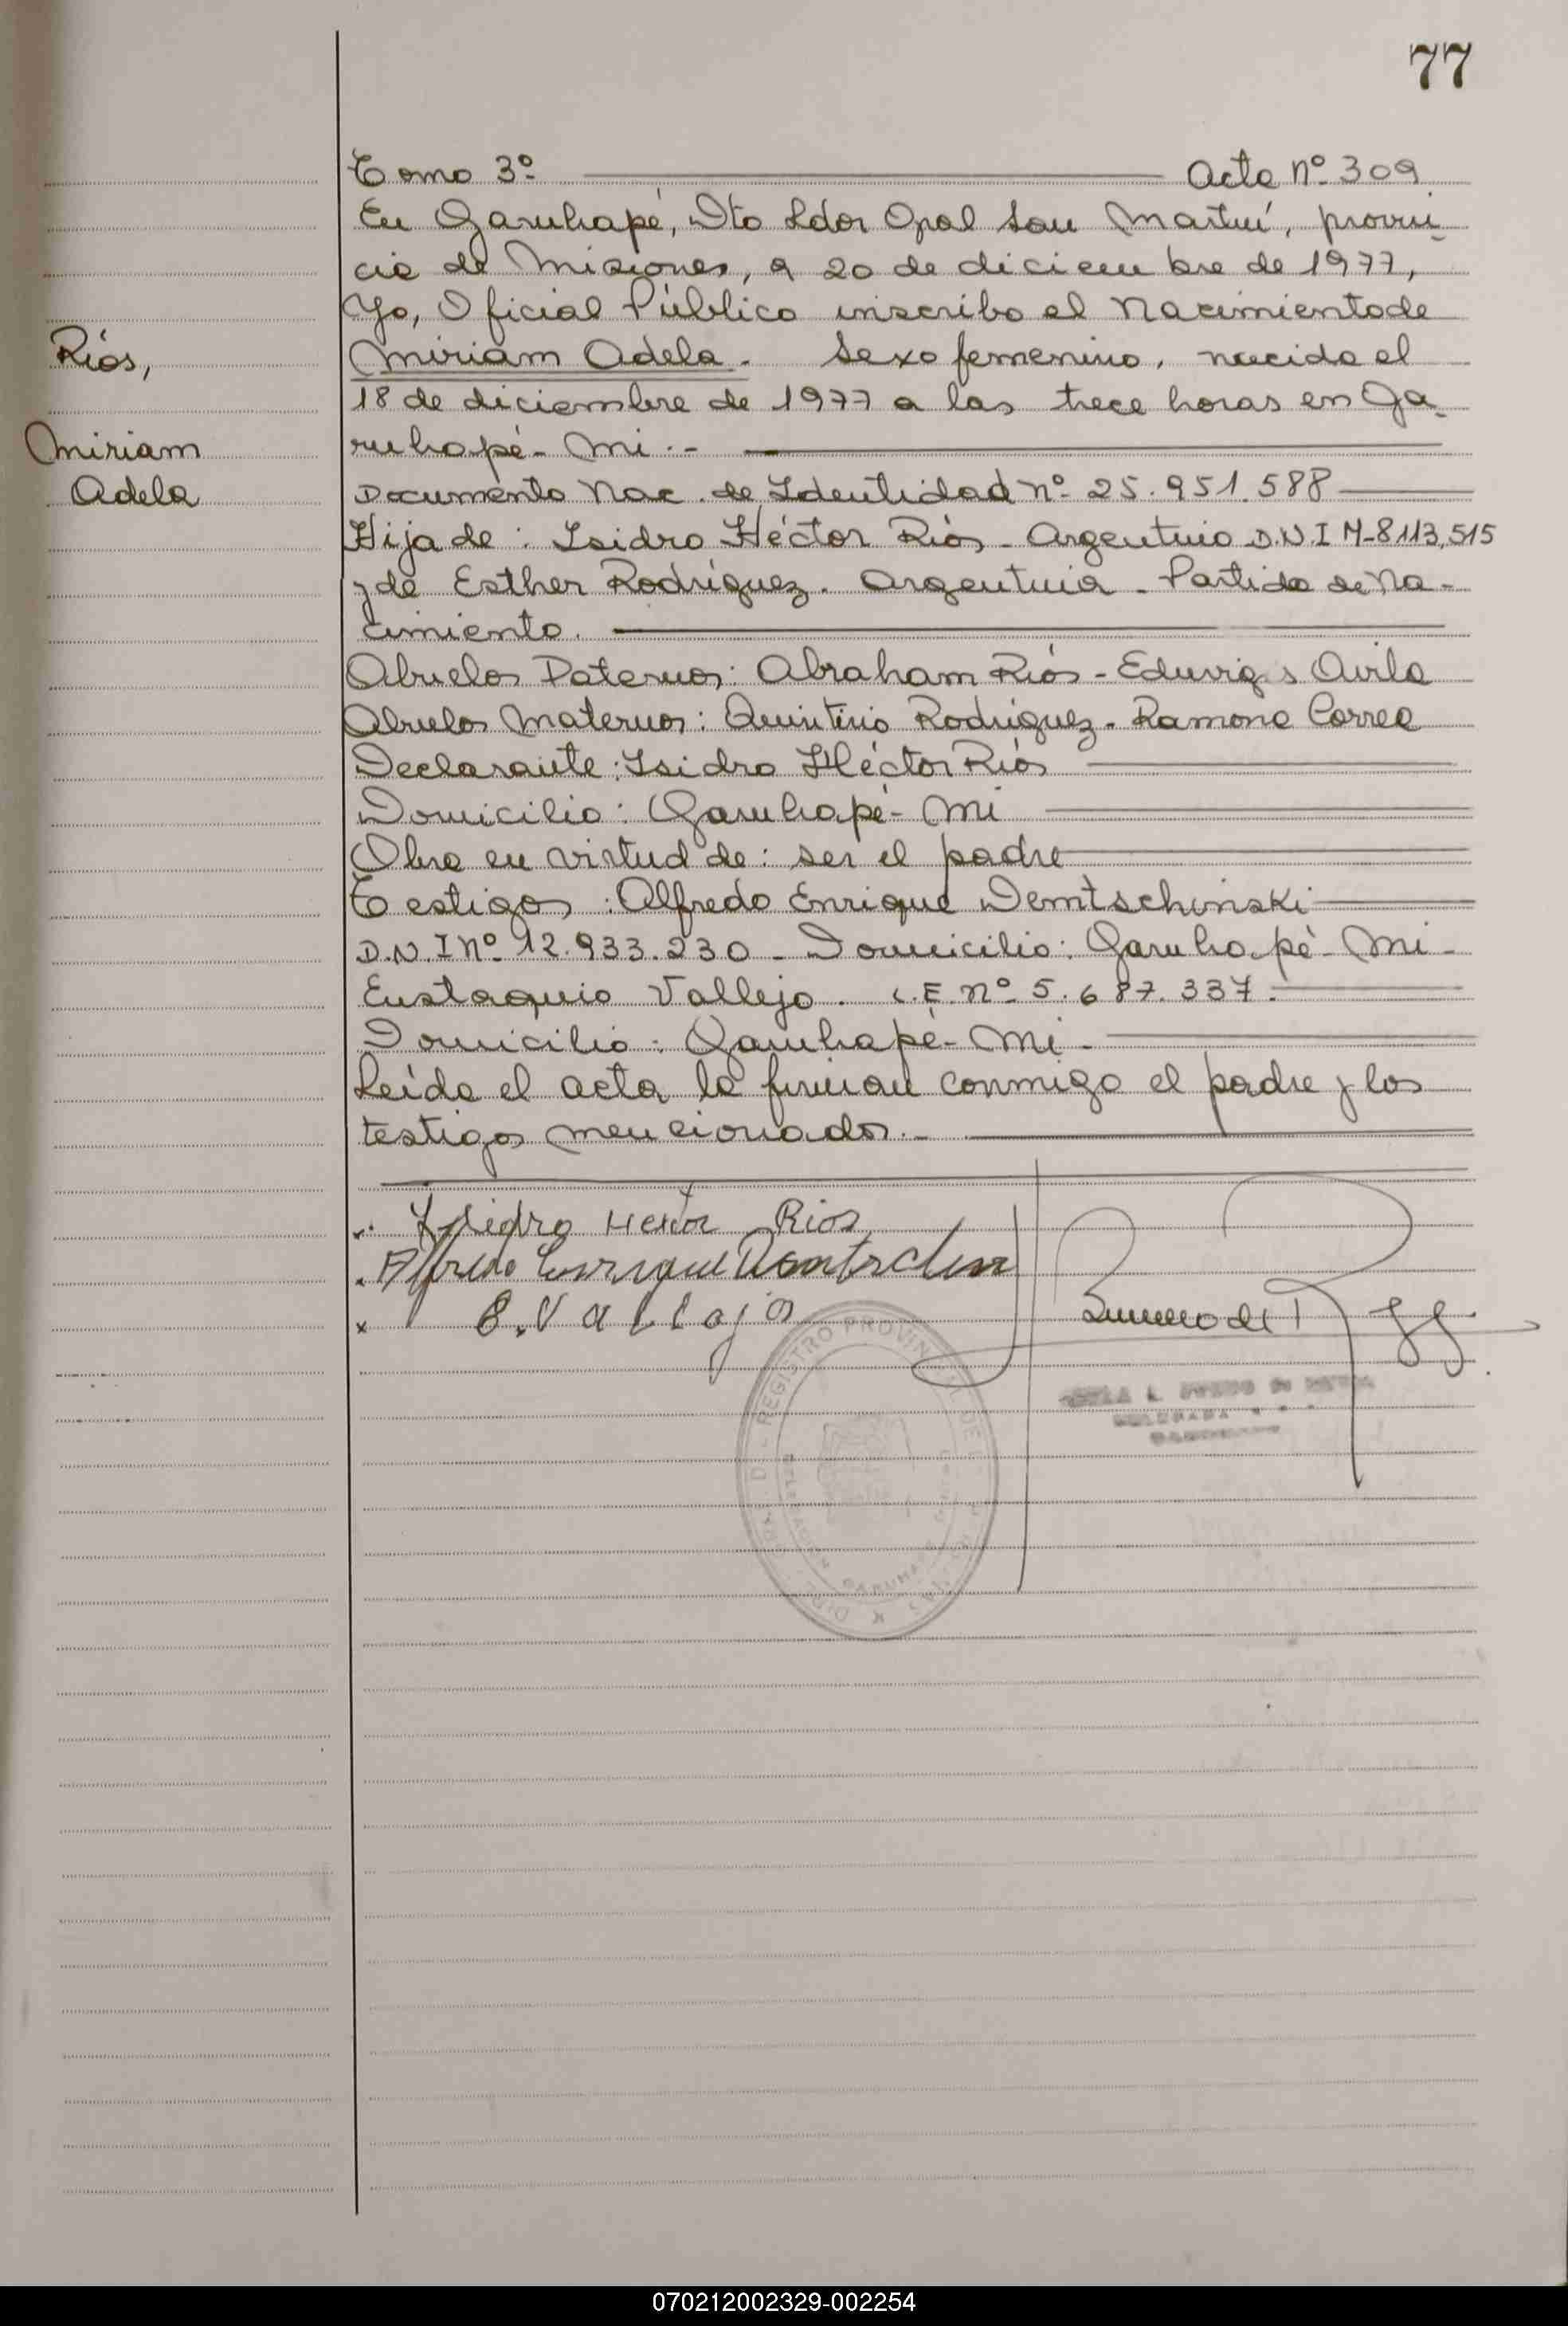 77
Tomo 3º Acta Nº 309
En Garuhapé, Dto Ldor Gral San Martín, provin-
cia de Misiones, a 20 de diciembre de 1977,
Yo, Oficial Público inscribo el Nacimiento de
Ríos,
Miriam Adela. Sexo femenino, nacida el
18 de diciembre de 1977 a las trece horas en Ga-
Miriam
ruhapé - Mi.-
Adela
Documento Nac. de Identidad nº 25.951.588
Hija de: Isidro Héctor Ríos - Argentino D.N.I M-8113,515
y de Esther Rodríguez. Argentina - Partida de Na-
cimiento.
Abuelos Paternos: Abraham Ríos - Eduviges Avila
Abuelos Maternos: Quintino Rodríguez - Ramona Correa
Declarante: Isidro Héctor Ríos
Domicilio: Garuhapé - Mi
Obra en virtud de: ser el padre
Testigos: Alfredo Enrique Demtschinski
D.N.I Nº 12.933.230 - Domicilio: Garuhapé - Mi -
Eustaquio Vallejo. L.E. nº 5.687.337.
Domicilio: Garuhapé - Mi -
Leída el acta, la firman conmigo el padre y los
testigos mencionados.-
Isidro Hector Rios
Alfredo Enrique
E. Vallejo
REGISTRO PROVINCIAL DE
GARUHAPE
070212002329-002254